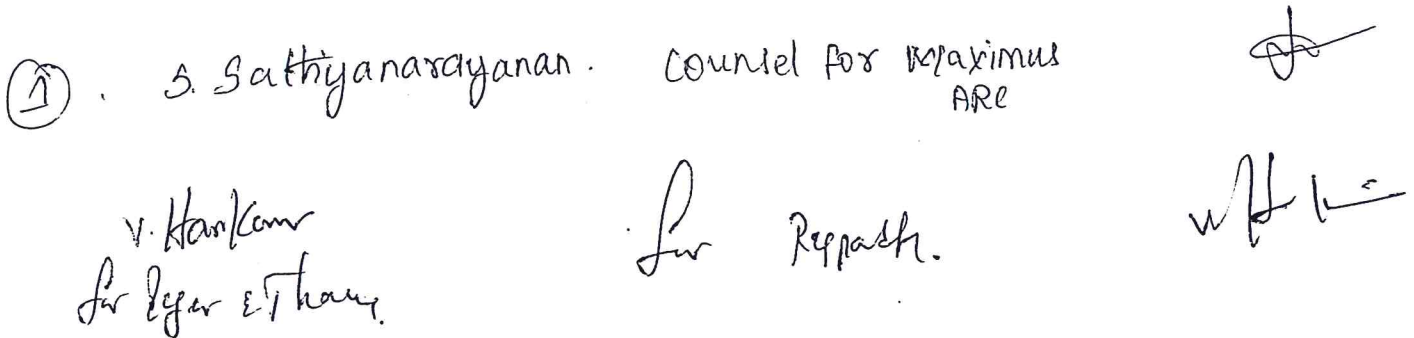 1. S. Sathiyanarayanan. Counsel for Maximus
ARC
V. Harikumar for
for Iyer & Thomas